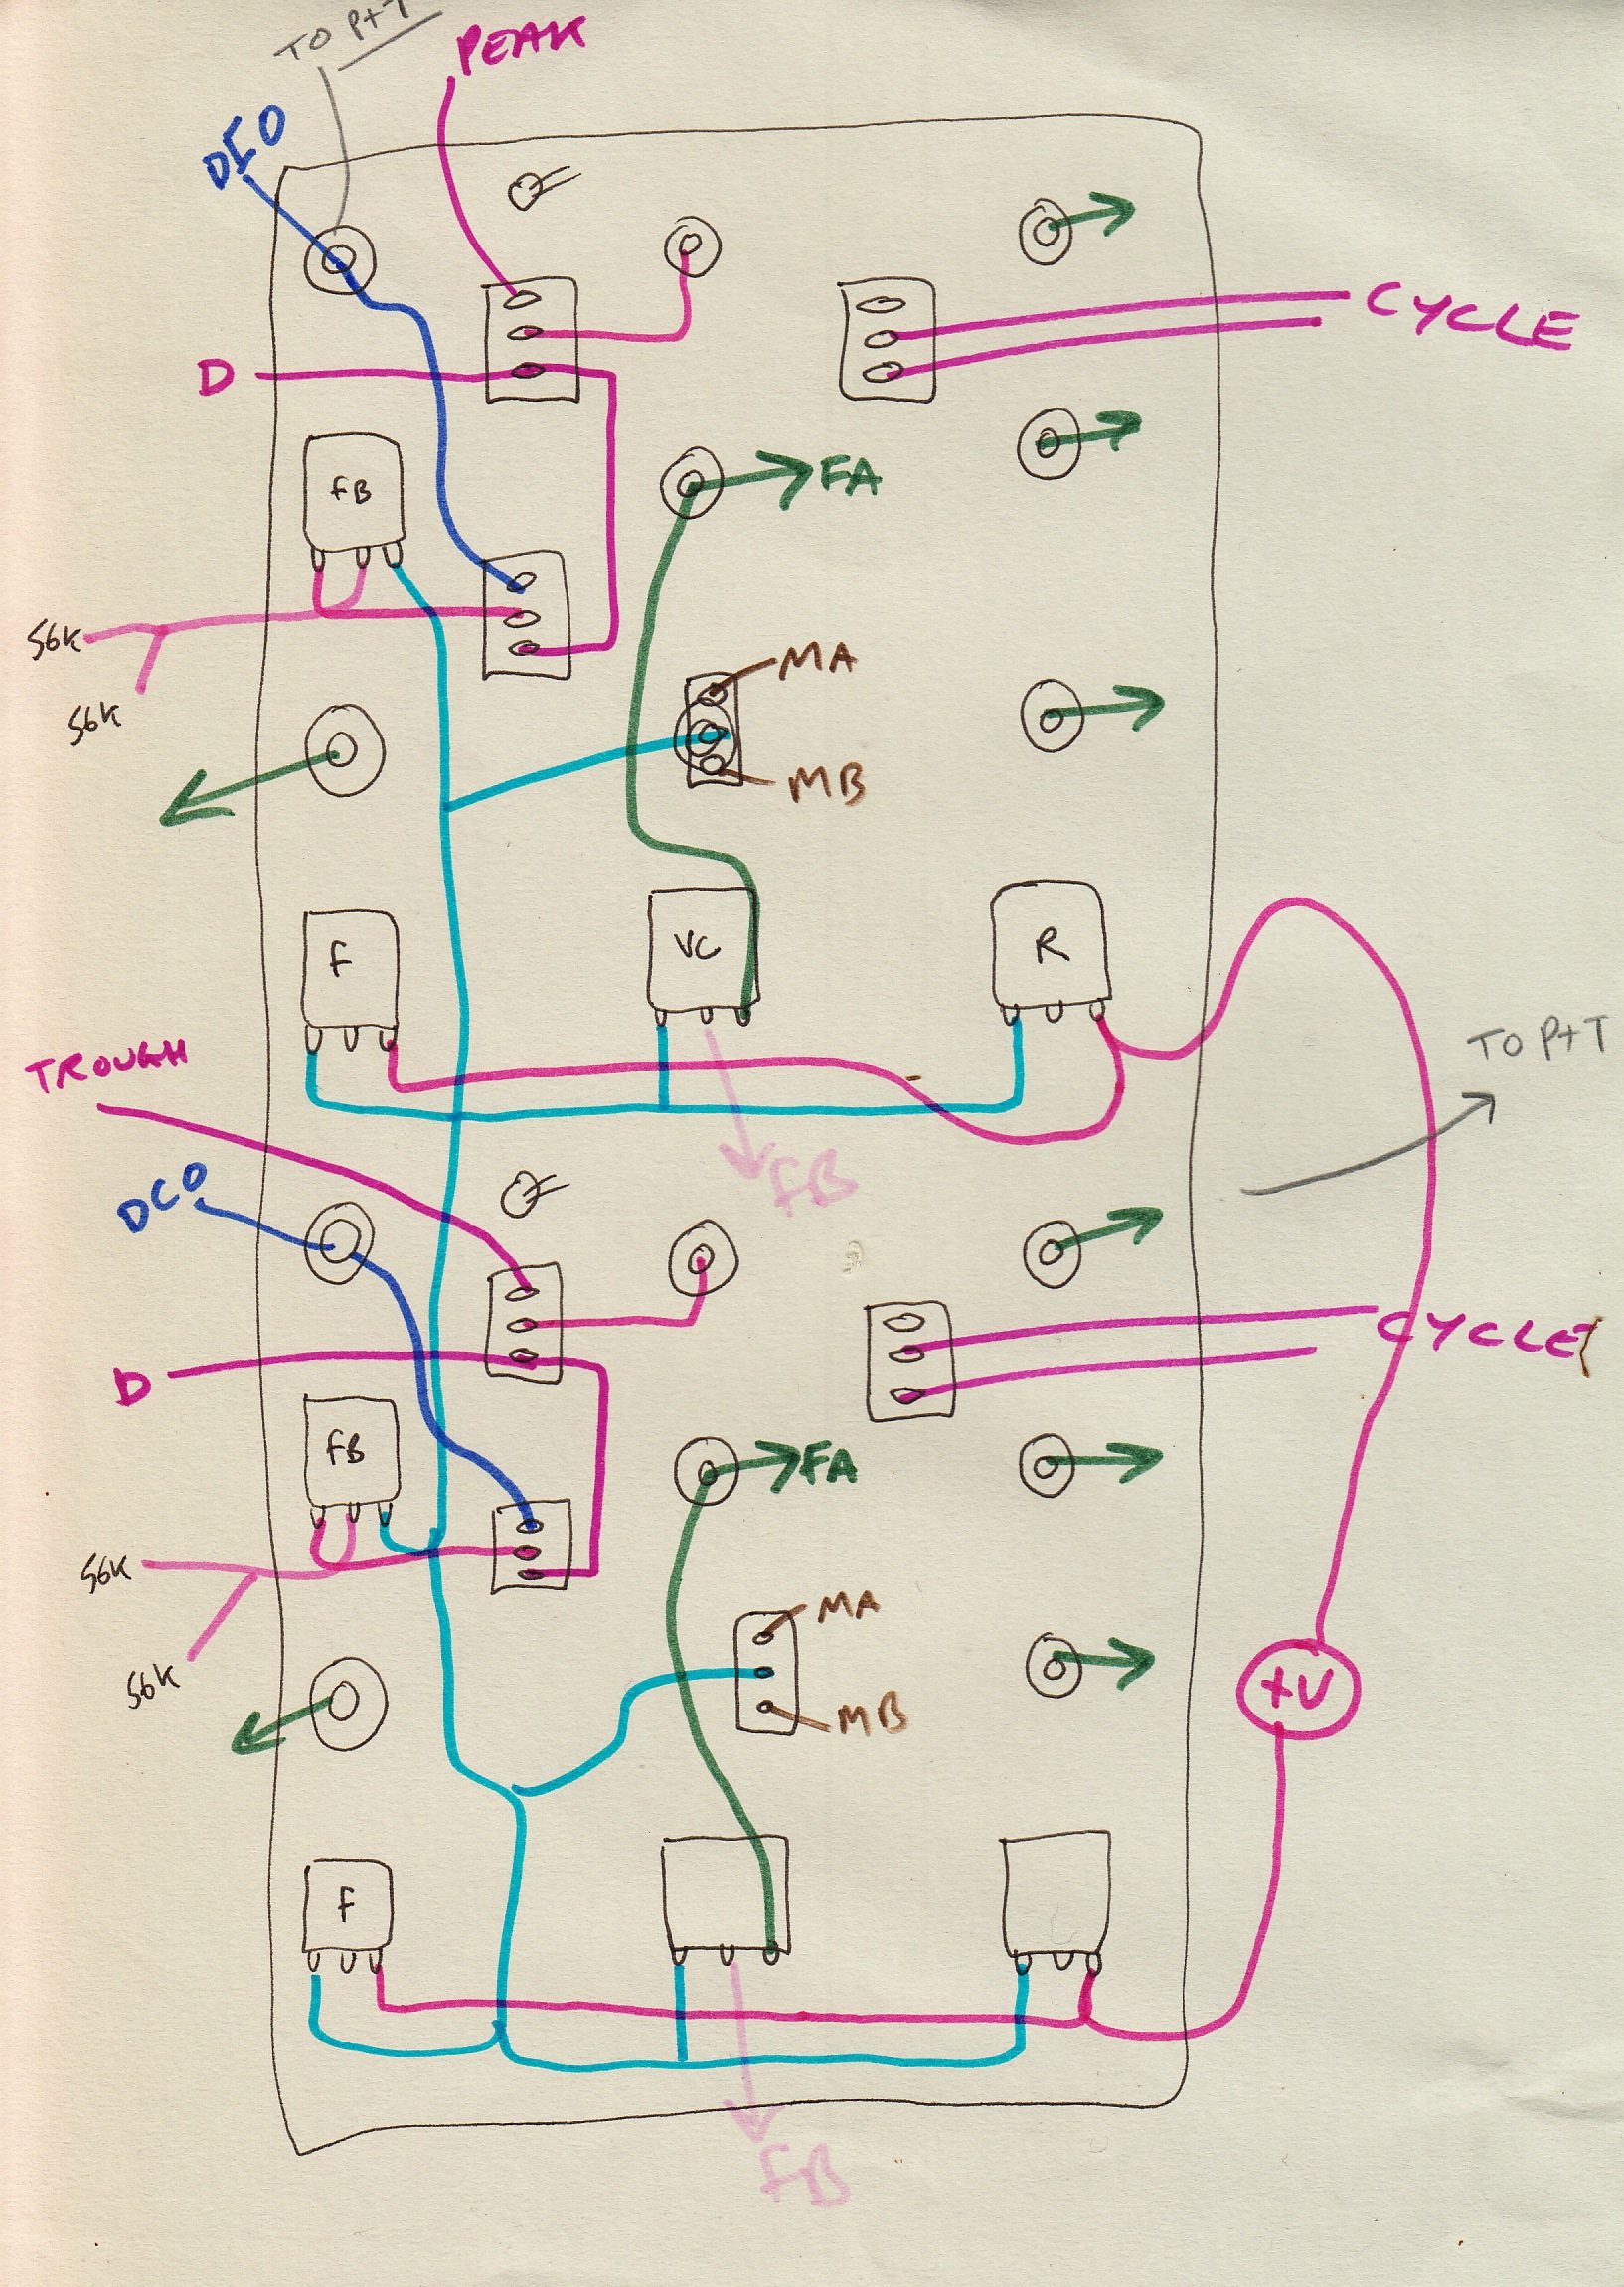 TO P+T
PEAK
DIO
CYCLE
D
FB
FA
56K
56K
MA
MB
F
VC
R
TO P+T
TROUGH
FB
DCO
CYCLE
D
FB
FA
56K
56K
MA
MB
+V
F
FB